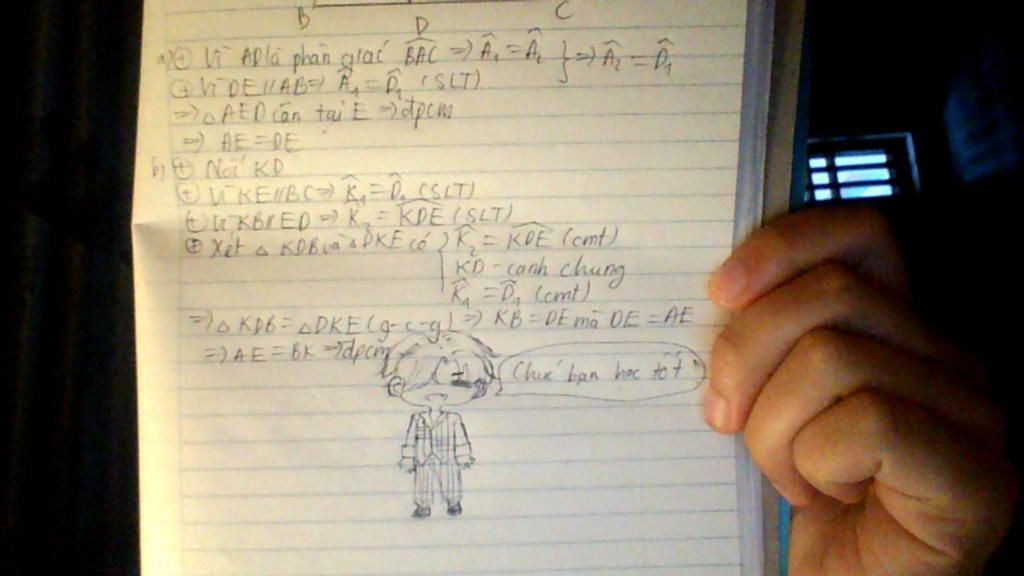 B D C
a) + Vì AD là phân giác BAC => Â₁ = Â₂ } => Â₂ = D̂₁
+ Vì DE // AB => Â₁ = D̂₁ (SLT)
=> △ AED cân tại E => đpcm
=> AE = DE
b) + Nối KD
+ Vì KE // BC => K̂₁ = D̂₁ (SLT)
+ Vì KB // ED => K̂₂ = KDE (SLT)
+ Xét △ KDB và △ DKE có { K̂₂ = KDE (cmt)
KD - cạnh chung
K̂₁ = D̂₁ (cmt)
=> △ KDB = △ DKE (g-c-g) => KB = DE mà DE = AE
=> AE = BK => đpcm
Chúc bạn học tốt